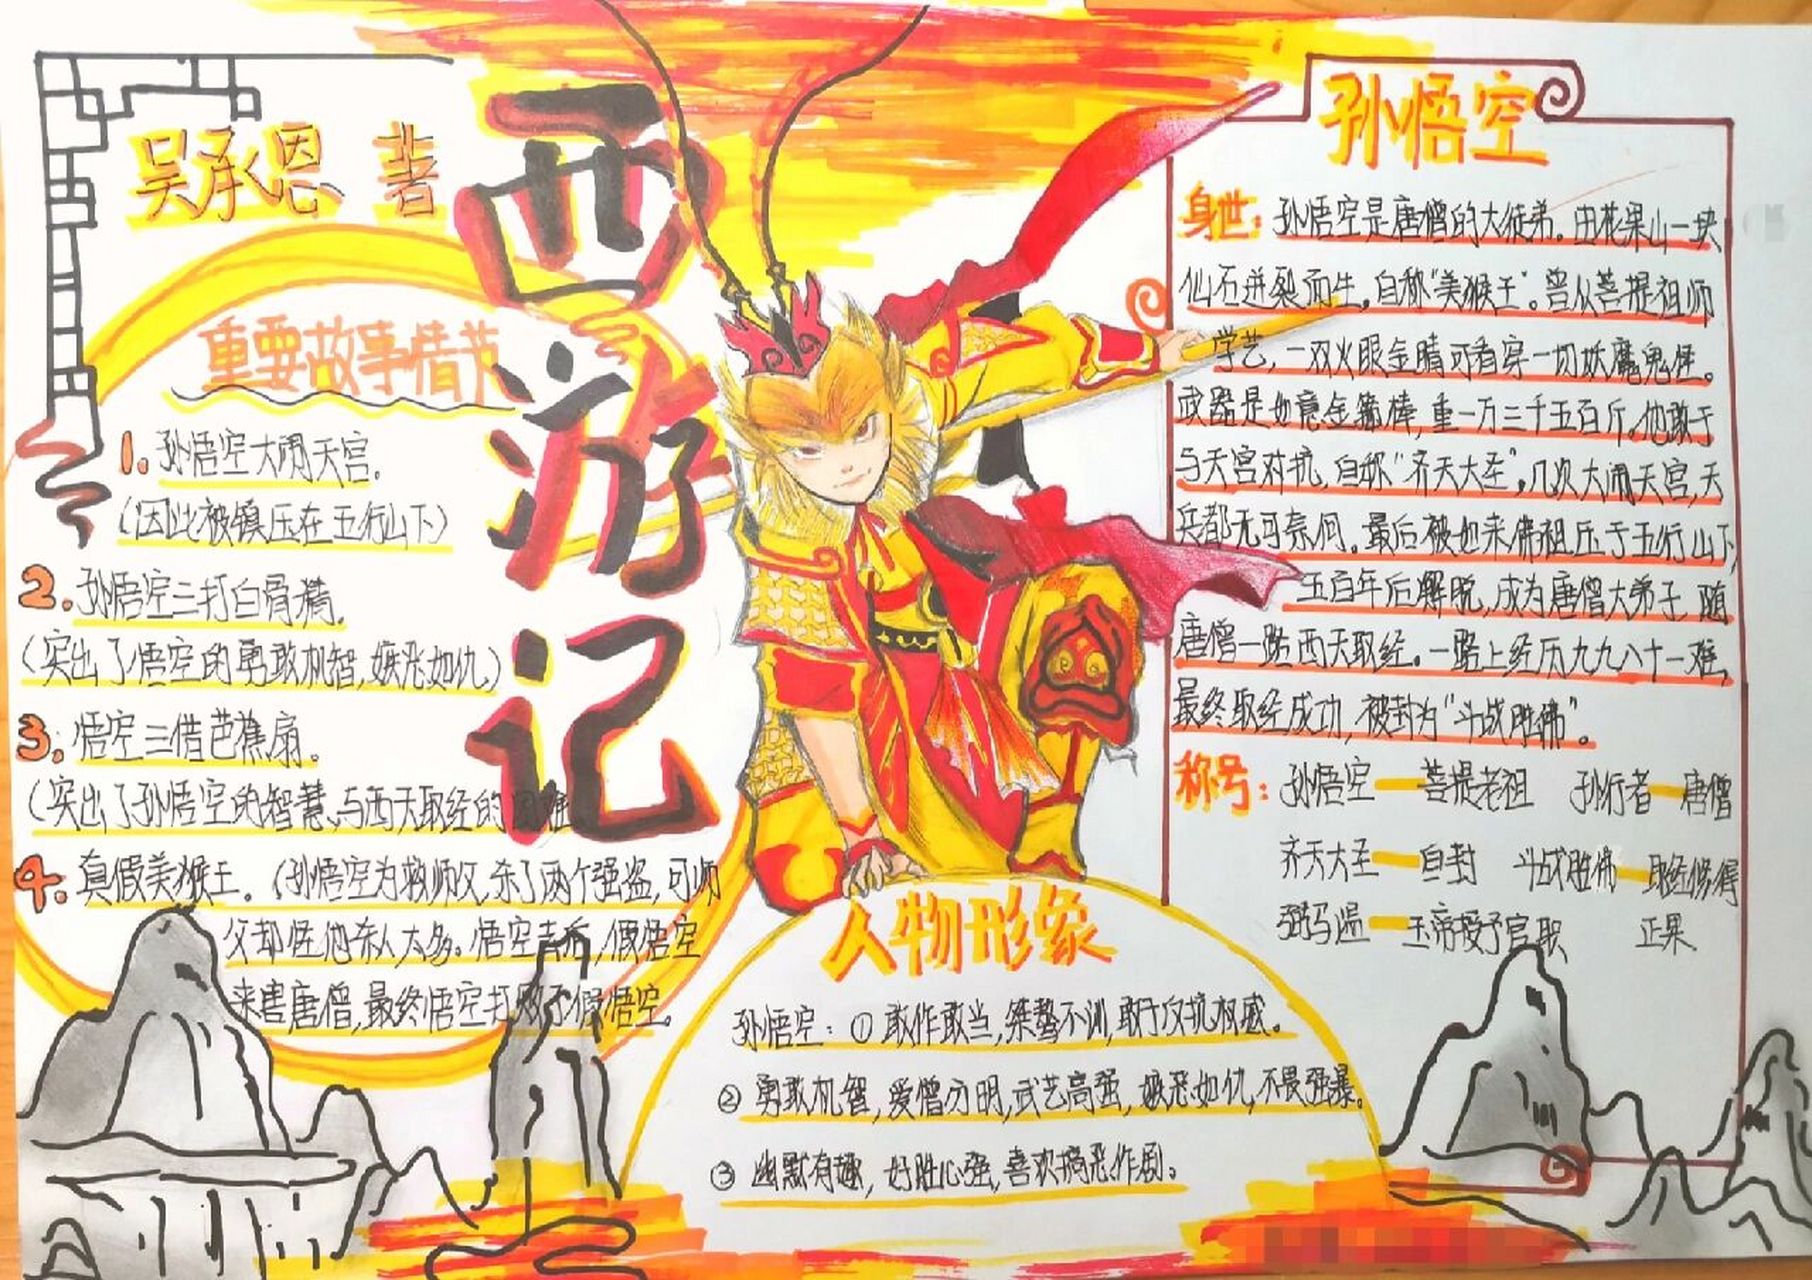 吴承恩 著
西游记
重要故事情节
1. 孙悟空大闹天宫.
(因此被镇压在五行山下)
2. 孙悟空三打白骨精.
(突出了悟空的勇敢机智,嫉恶如仇)
3. 悟空三借芭蕉扇。
(突出了孙悟空的智慧、与西天取经的困难
4. 真假美猴王。(孙悟空为救师父,杀了两个强盗,可师
父却怪他杀人太多。悟空走后,假悟空
来害唐僧,最终悟空打败了假悟空。
孙悟空
身世: 孙悟空是唐僧的大徒弟。由花果山一块
仙石迸裂而生,自称"美猴王"。曾从菩提祖师
学艺,一双火眼金睛可看穿一切妖魔鬼怪。
武器是如意金箍棒,重一万三千五百斤。他敢于
与天宫对抗,自称"齐天大圣",几次大闹天宫,天
兵都无可奈何。最后被如来佛祖压于五行山下,
五百年后解脱,成为唐僧大弟子,随
唐僧一路西天取经。一路上经历九九八十一难,
最终取经成功,被封为"斗战胜佛"。
称号: 孙悟空—菩提老祖 孙行者—唐僧
齐天大圣—自封 斗战胜佛—取经修得
弼马温—玉帝授予官职 正果
人物形象
孙悟空:①敢作敢当,桀骜不训,敢于反抗权威。
② 勇敢机智,爱憎分明,武艺高强,嫉恶如仇,不畏强暴。
③ 幽默有趣,好胜心强,喜欢搞恶作剧。